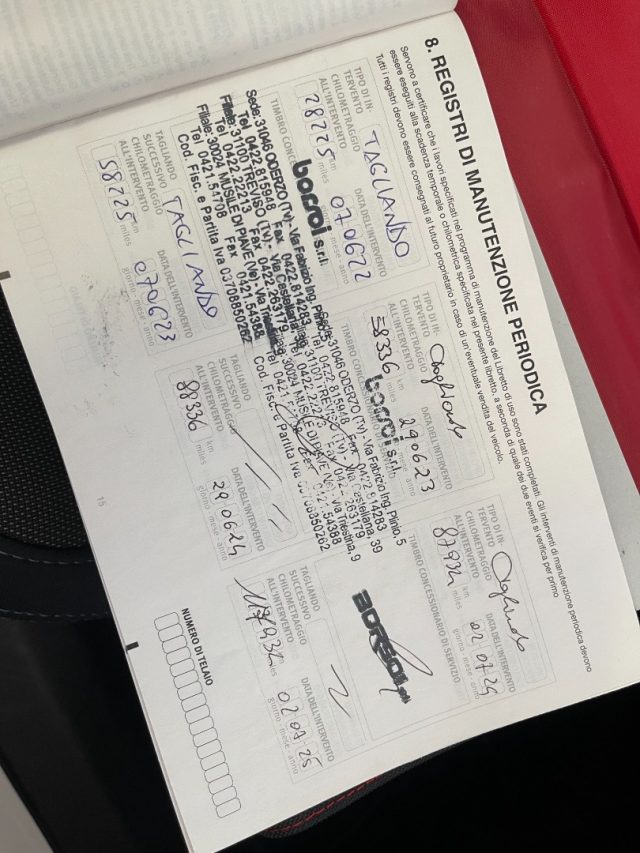 8. REGISTRI DI MANUTENZIONE PERIODICA
Servono a certificare che i lavori specificati nel programma di manutenzione del Libretto di uso sono stati completati. Gli interventi di manutenzione periodica devono
essere eseguiti alla scadenza temporale o chilometrica specificata nel presente libretto, a seconda di quale dei due eventi si verifica per primo
Tutti i registri devono essere consegnati al futuro proprietario in caso di un'eventuale vendita del veicolo.
TIPO DI IN-
TERVENTO
TAGLIANDO
CHILOMETRAGGIO
ALL'INTERVENTO
DATA DELL'INTERVENTO
28225 km
miles
070622
giorno - mese - anno
TIMBRO CONCE
borsoi s.r.l.
Sede: 31046 ODERZO (TV) - Via Fabrizio Ing. Plinio
Tel 0422.815948 Fax 0422.814283
Filiale: 31100 TREVISO (TV) - Via Castellana, 39
Tel 0422.22213 Fax 0422.263179
Filiale: 30024 MUSILE DI PIAVE (Ve) - Via Triestina
Tel 0421.54708 Fax 0421.54388
Cod. Fisc. e Partita Iva 03708850262
TAGLIANDO
SUCCESSIVO
TAGLIANDO
CHILOMETRAGGIO
ALL'INTERVENTO
DATA DELL'INTERVENTO
58225 km
miles
070623
giorno - mese - anno
TIPO DI IN-
TERVENTO
Tagliando
CHILOMETRAGGIO
ALL'INTERVENTO
DATA DELL'INTERVENTO
58336 km
miles
290623
mese - anno
TIMBRO CONCE
borsoi s.r.l.
Sede: 31046 ODERZO (TV) - Via Fabrizio Ing. Plinio, 5
Tel 0422.815948 Fax 0422.814283
TREVISO (TV) - Via Castellana, 39
Tel 0422.22213 Fax 0422.263179
30024 MUSILE DI PIAVE (Ve) - Via Triestina, 9
Tel 0421 54388
Cod. Fisc. e Partita Iva 03708850262
TAGLIANDO
SUCCESSIVO
CHILOMETRAGGIO
ALL'INTERVENTO
DATA DELL'INTERVENTO
88336 km
miles
290624
giorno - mese - anno
TIPO DI IN-
TERVENTO
Tagliando
CHILOMETRAGGIO
ALL'INTERVENTO
DATA DELL'INTERVENTO
87934 km
miles
020724
giorno - mese - anno
TIMBRO CONCESSIONARIO DI SERVIZIO
BORSOI srl
TAGLIANDO
SUCCESSIVO
CHILOMETRAGGIO
ALL'INTERVENTO
DATA DELL'INTERVENTO
117934 km
miles
020725
giorno - mese - anno
NUMERO DI TELAIO
15